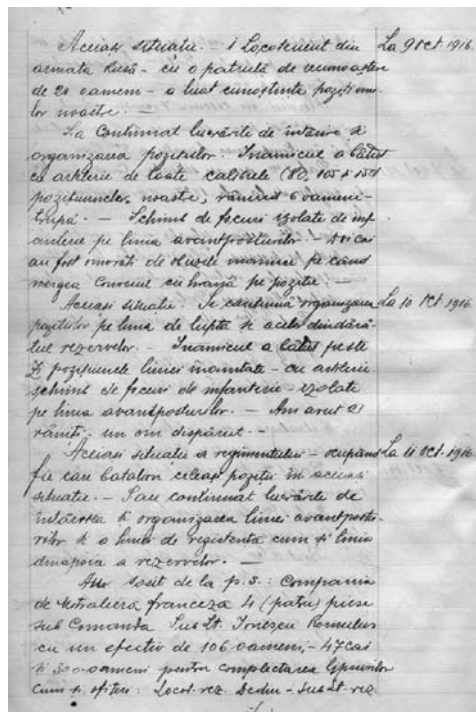 Aceiași situație. - 1 Locotenent din
La 9 Oct. 1916
armata Rusă - cu o patrulă de recunoaștere
de 20 oameni - a luat cunoștința pozițiuni
lor noastre. -
S'a continuat lucrările de întărire și
organizarea pozițiilor. Inamicul a bătut
cu artilerie de toate calibrele (80, 105 și 150)
pozițiunele noastre, rănind 6 oameni
trupă. - Schimb de focuri izolate de inf
anterie pe linia avantposturilor. - Doi cai
au fost omorâți de obuzele inamice pe când
mergea Convoiul cu hrană pe poziție -
Aceiași situație. Se continuă organizarea
La 10 Oct. 1916
pozițiilor pe linia de luptă și acele dindără
tul rezervelor. - Inamicul a bătut peste
zi pozițiunele liniei înaintate - cu artilerie
schimb de focuri de infanterie - izolate
pe linia avantposturilor. - Am avut 21
răniți, un om dispărut. -
Aceiași situație a regimentului - ocupând
La 11 Oct. 1916
fie care batalion celeași poziții în aceiași
situație. - S'au continuat lucrările de
întărirea și organizarea liniei avantpostu
rilor și a linia de rezistență cum și linia
dinapoia a rezervelor. -
Au sosit de la p. s.: Compania
de Mitraliera franceza 4 (patru) piese
sub Comanda Sus Lt. Ionescu Romulus
cu un efectiv de 106 oameni, - 47 cai
și 300 oameni pentru complectarea
cum și ofițeri: Locot. rez. Dediu - Sus Lt. rez.